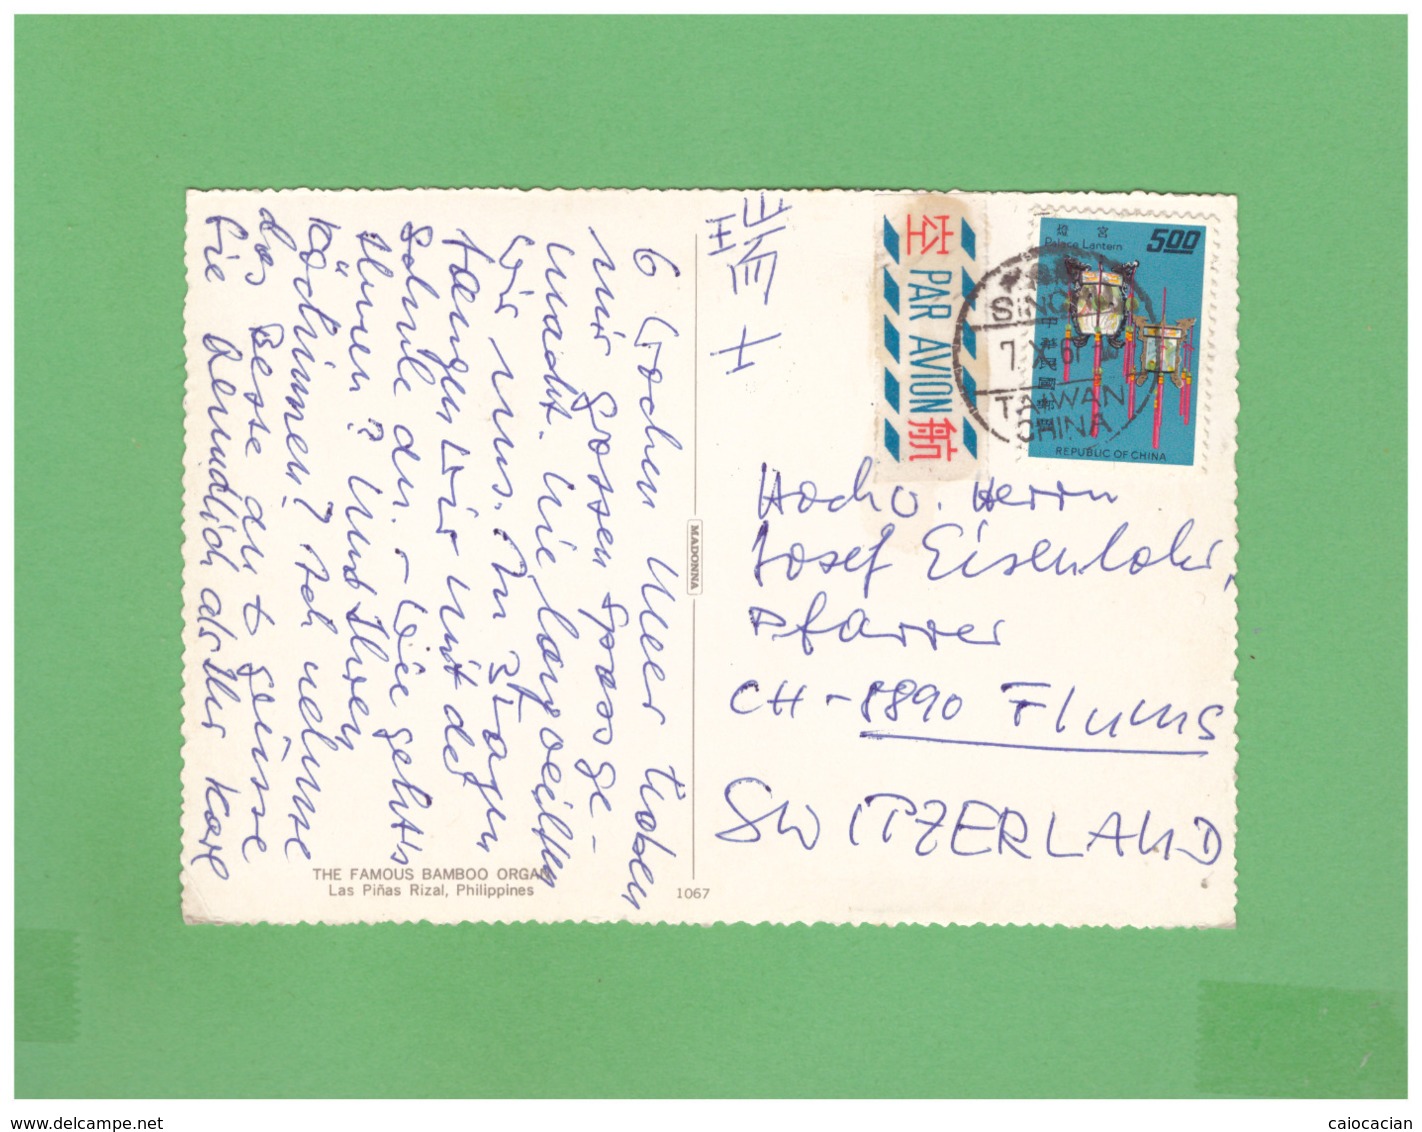 6 Wochen Meer haben
mir grossen Spass ge-
macht. Nie langweilten
wir uns. In 3 Tagen
fangen wir mit der
Schule an. – Wie gehts
Ihnen? Und Ihrer
Köchinnen? Ich nehme
das Beste an & grüsse
Sie freundlich als Ihr Kare
瑞士
空 PAR AVION 航
宮燈
Palace Lantern
5.00
中華民國郵票
REPUBLIC OF CHINA
7. X. 6
TAIWAN
CHINA
Hochw. Herrn
Josef Eisenlohr,
Pfarrer
CH-8890 Flums
SWITZERLAND
MADONNA
THE FAMOUS BAMBOO ORGAN
Las Piñas Rizal, Philippines
1067
www.delcampe.net
caiocacian